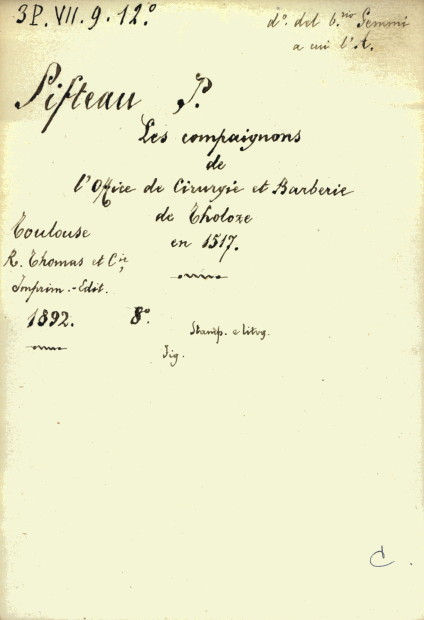 3P. VII. 9. 12.º
d.º del b.ne Semmi
a cui l'A.
Pifteau P.
Les compaignons
de
l'Office de Cirurgie et Barberie
de Tholoze
en 1517.
Toulouse
R. Thomas et Cie,
Imprim.-Edit.
1892. 8º.
Stamp. e litog.
Fig.
C.